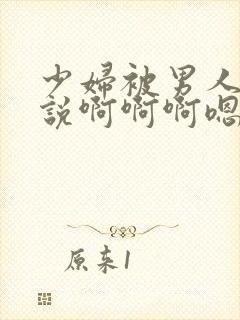 少婦被男人
説啊啊啊嗯
原来1